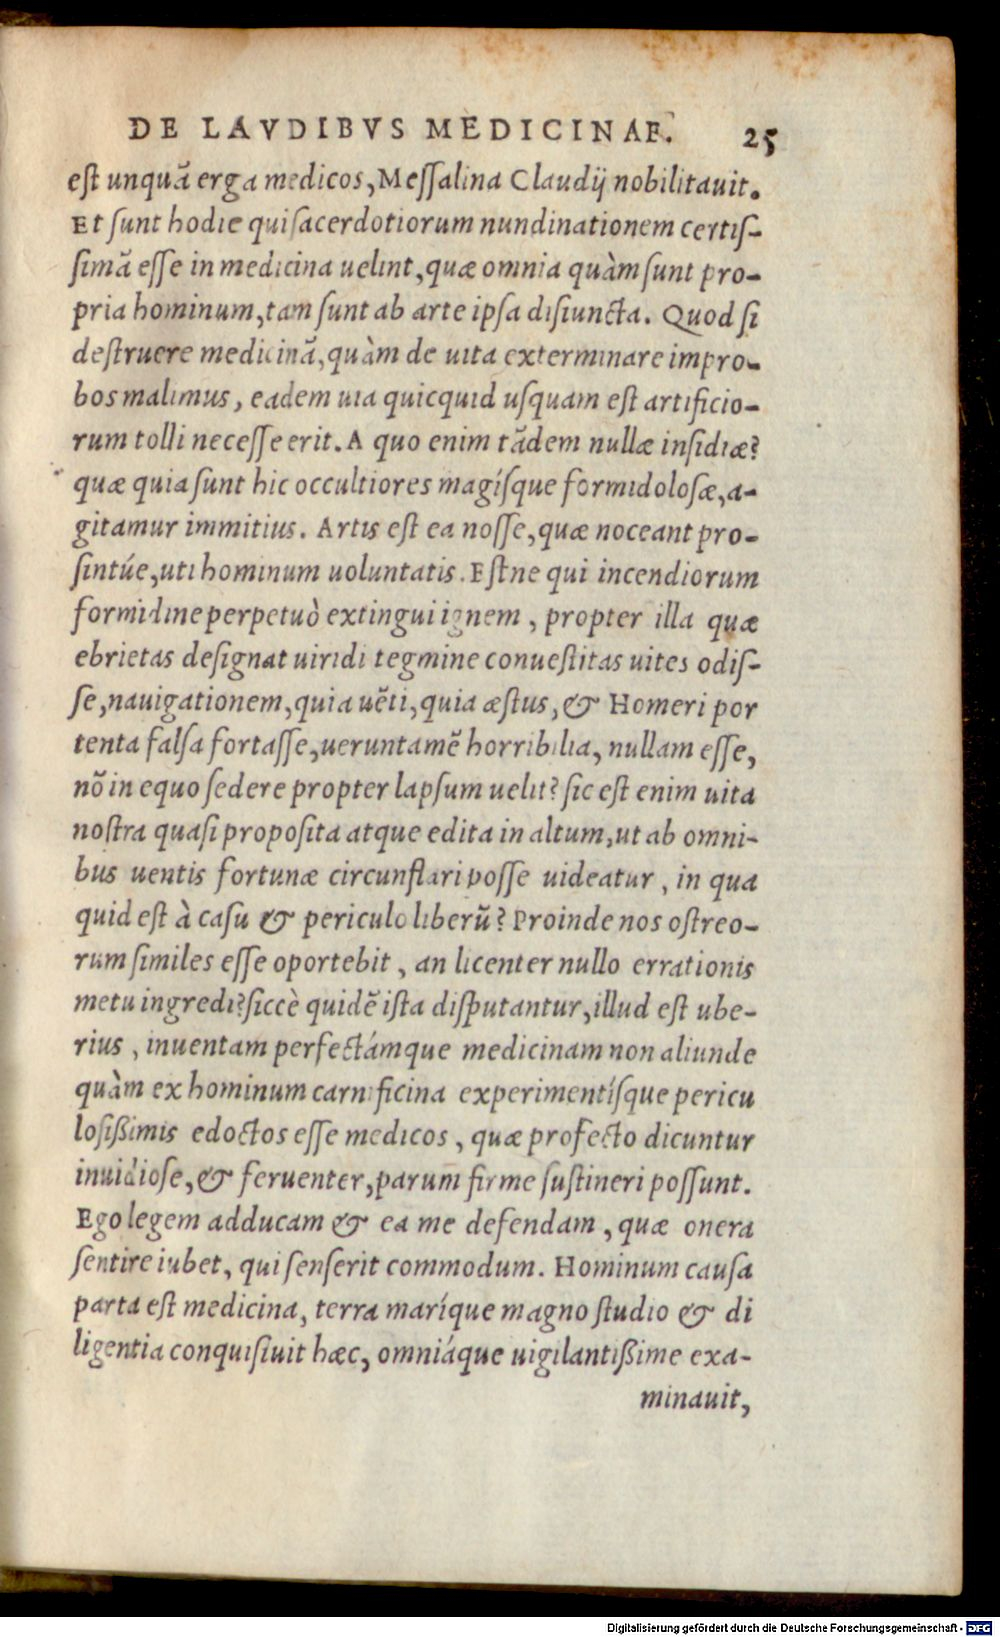 DE LAVDIBVS MEDICINAE. 25
est unquã erga medicos, Messalina Claudij nobilitauit.
Et sunt hodie qui sacerdotiorum nundinationem certis-
simã esse in medicina uelint, quæ omnia quàm sunt pro-
pria hominum, tam sunt ab arte ipsa disiuncta. Quod si
destruere medicinã, quàm de uita exterminare impro-
bos malimus, eadem uia quicquid usquam est artificio-
rum tolli necesse erit. A quo enim tãdem nullæ insidiæ?
quæ quia sunt hic occultiores magísque formidolosæ, a-
gitamur immitius. Artis est ea nosse, quæ noceant pro-
sintúe, uti hominum uoluntatis. Estne qui incendiorum
formidine perpetuò extingui ignem, propter illa quæ
ebrietas designat uiridi tegmine conuestitas uites odis-
se, nauigationem, quia uẽti, quia æstus, & Homeri por
tenta falsa fortasse, ueruntamẽ horribilia, nullam esse,
nõ in equo sedere propter lapsum uelit? sic est enim uita
nostra quasi proposita atque edita in altum, ut ab omni-
bus uentis fortunæ circunflari posse uideatur, in qua
quid est à casu & periculo liberũ? Proinde nos ostreo-
rum similes esse oportebit, an licenter nullo errationis
metu ingredi? siccè quidẽ ista disputantur, illud est ube-
rius, inuentam perfectámque medicinam non aliunde
quàm ex hominum carnificina experimentísque pericu
losißimis edoctos esse medicos, quæ profecto dicuntur
inuidiose, & feruenter, parum firme sustineri possunt.
Ego legem adducam & ea me defendam, quæ onera
sentire iubet, qui senserit commodum. Hominum causa
parta est medicina, terra maríque magno studio & di
ligentia conquisiuit hæc, omniáque uigilantißime exa-
minauit,
Digitalisierung gefördert durch die Deutsche Forschungsgemeinschaft - DFG